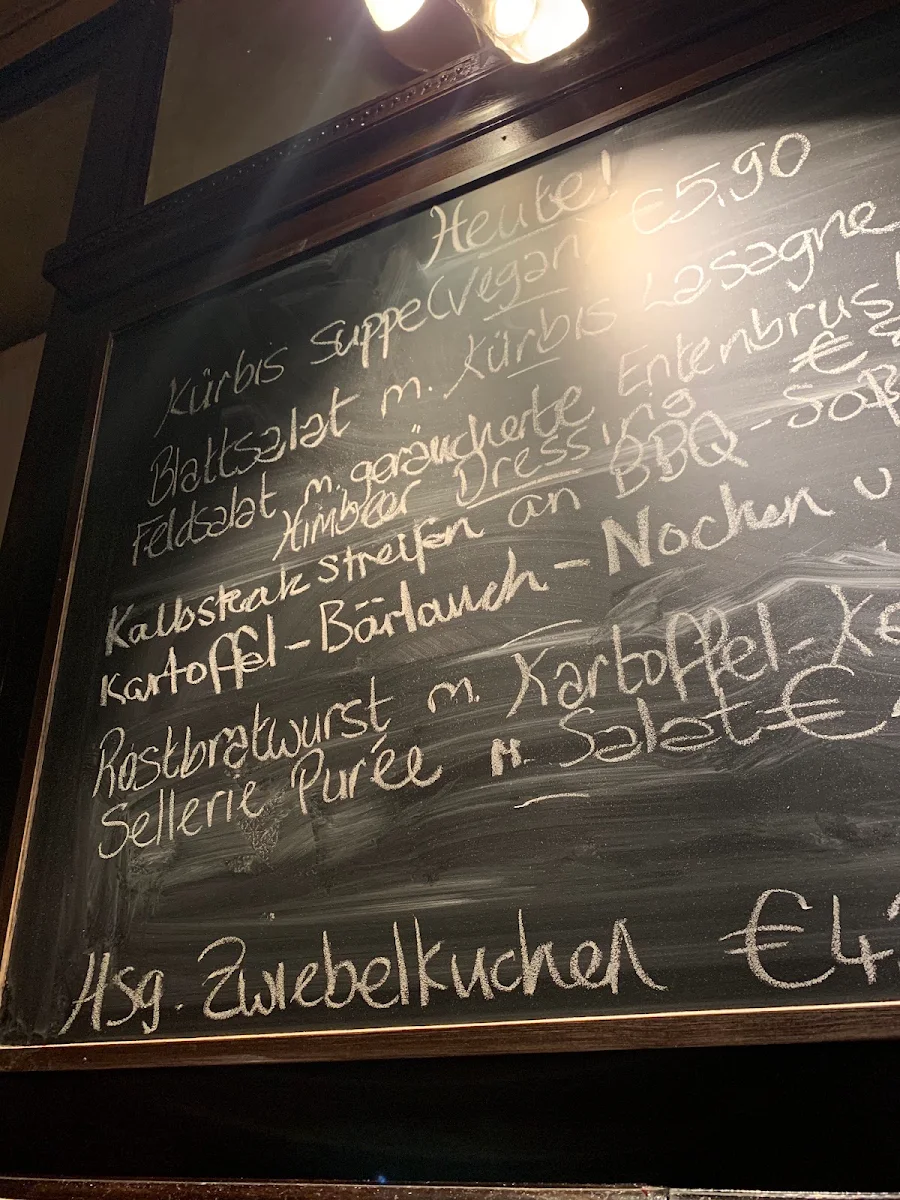 Heute!
Kürbis Suppe (Vegan) €5,90
Blattsalat m. Kürbis Lasagne
Feldsalat m. geräucherte Entenbrust
Himbeer Dressing €
Kalbsteak streifen an BBQ-Soß
Kartoffel-Bärlauch-Nocken u
Rostbratwurst m. Kartoffel-
Sellerie Purée n. Salat €
Hsg. Zwiebelkuchen €4,